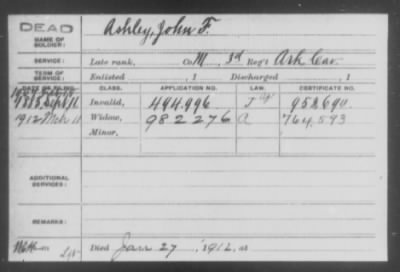 DEAD
NAME OF SOLDIER: Ashley, John F.
SERVICE: Late rank, Co. M, 3d Reg't Ark Cav.
TERM OF SERVICE: Enlisted , 1 Discharged , 1
DATE OF FILING. CLASS. APPLICATION NO. LAW. CERTIFICATE NO.
Sept 11 Invalid, 494,996 J 958,690
1912 Mch 11 Widow, 982276 A 764,593
Minor,
ADDITIONAL SERVICES:
REMARKS:
Died Jan 27, 1912, at